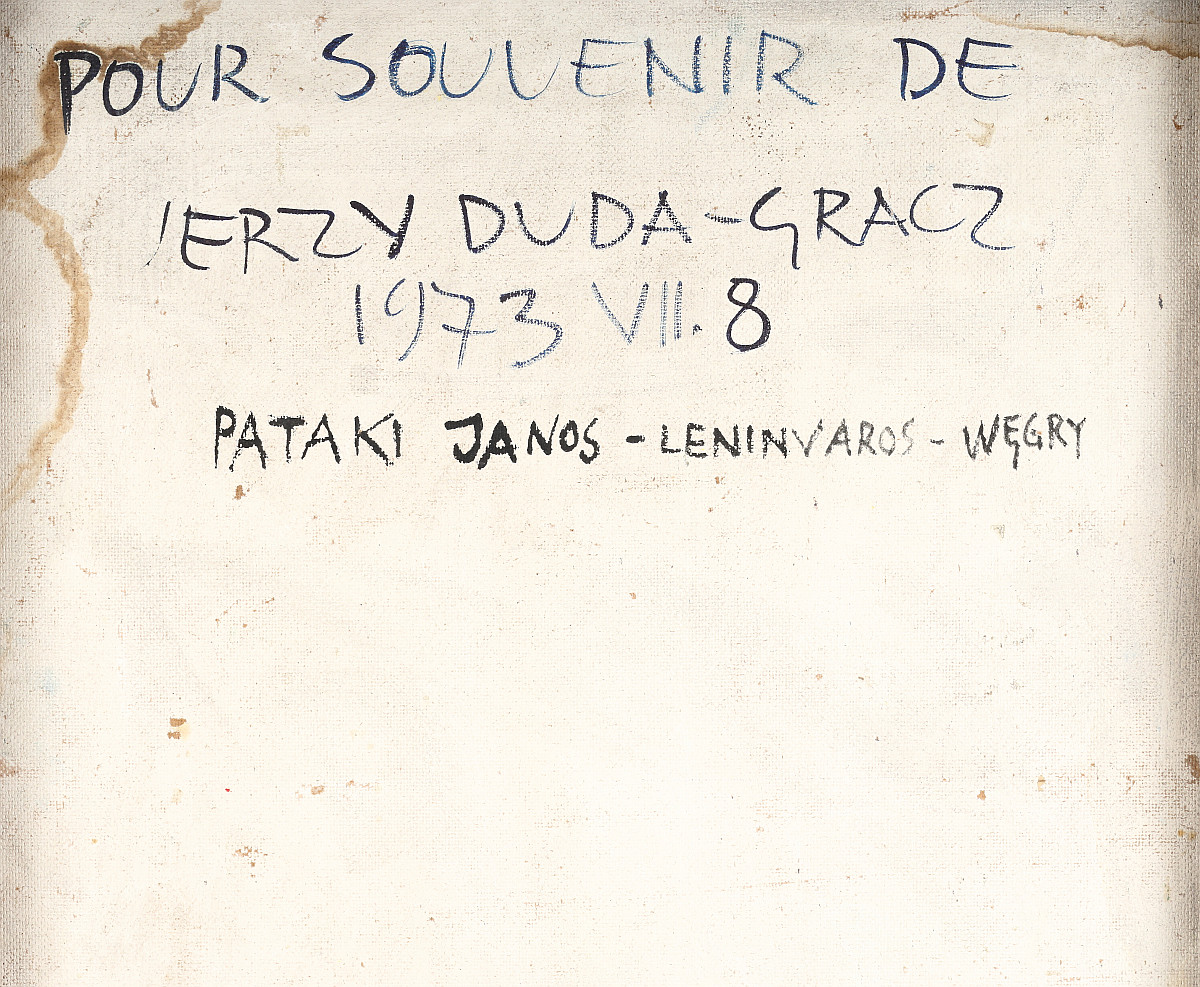 POUR SOUVENIR DE
JERZY DUDA-GRACZ
1973 VII. 8
PATAKI JANOS - LENINVAROS - WĘGRY